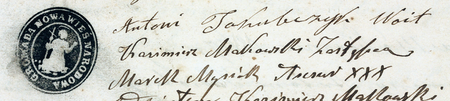 GROMADA NOWAWIEŚ NARODOWA
Antoni Jakubczyk Woit
Kazimierz Małkowski Zastępca
Marek XXX
Kazimierz Małkowski